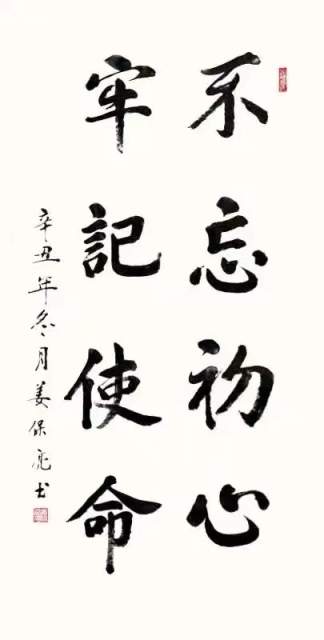 不忘初心
牢記使命
辛丑年冬月姜保亮书